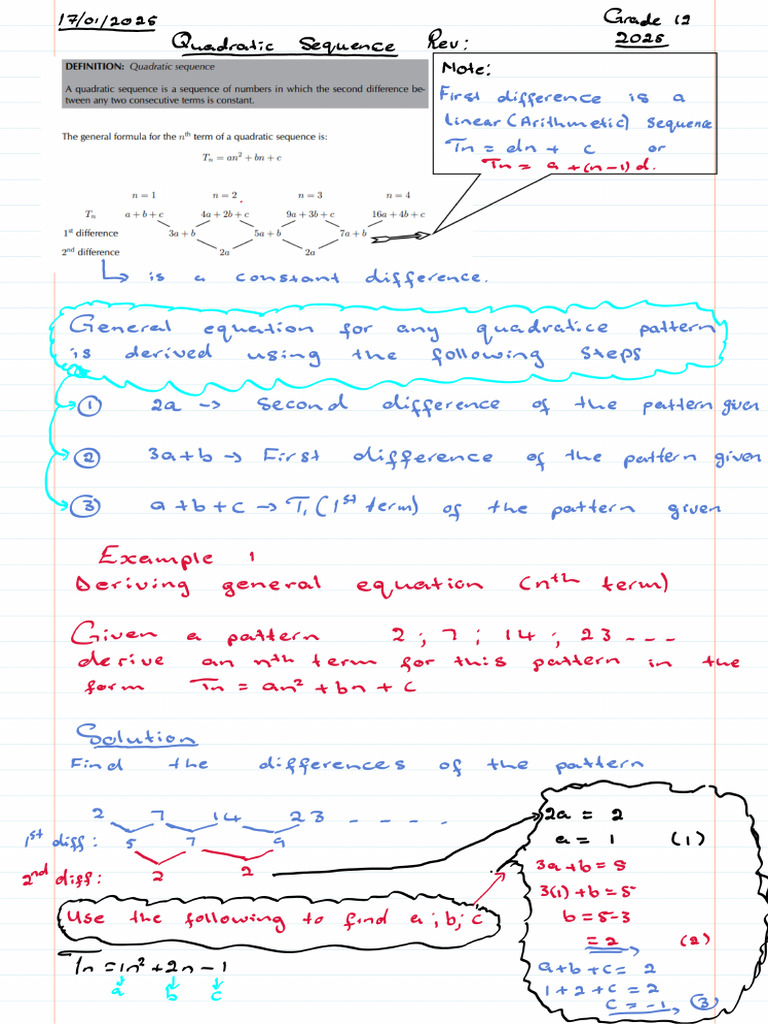 17/01/2025
Grade 12
2025
Quadratic Sequence Rev:
DEFINITION: Quadratic sequence
A quadratic sequence is a sequence of numbers in which the second difference be-
tween any two consecutive terms is constant.
Note:
First difference is a
linear (Arithmetic) sequence
Tn = dn + c or
Tn = a + (n-1) d.
The general formula for the nth term of a quadratic sequence is:
Tn = an² + bn + c
n = 1 n = 2 n = 3 n = 4
Tn a + b + c 4a + 2b + c 9a + 3b + c 16a + 4b + c
1st difference 3a + b 5a + b 7a + b
2nd difference 2a 2a
↳ is a constant difference.
General equation for any quadratice pattern
is derived using the following steps
① 2a → second difference of the pattern given
② 3a+b → First difference of the pattern given
③ a+b+c → T1 (1st term) of the pattern given
Example 1
Deriving general equation (nth term)
Given a pattern 2 ; 7 ; 14 ; 23 ---
derive an nth term for this pattern in the
form Tn = an² + bn + c
Solution
Find the differences of the pattern
2 7 14 23 - - - -
1st diff: 5 7 9
2nd diff: 2 2
Use the following to find a ; b ; c
2a = 2
a = 1 (1)
3a + b = 5
3(1) + b = 5
b = 5-3
= 2 (2)
a + b + c = 2
1 + 2 + c = 2
c = -1 ③
Tn = 1n² + 2n - 1
a b c